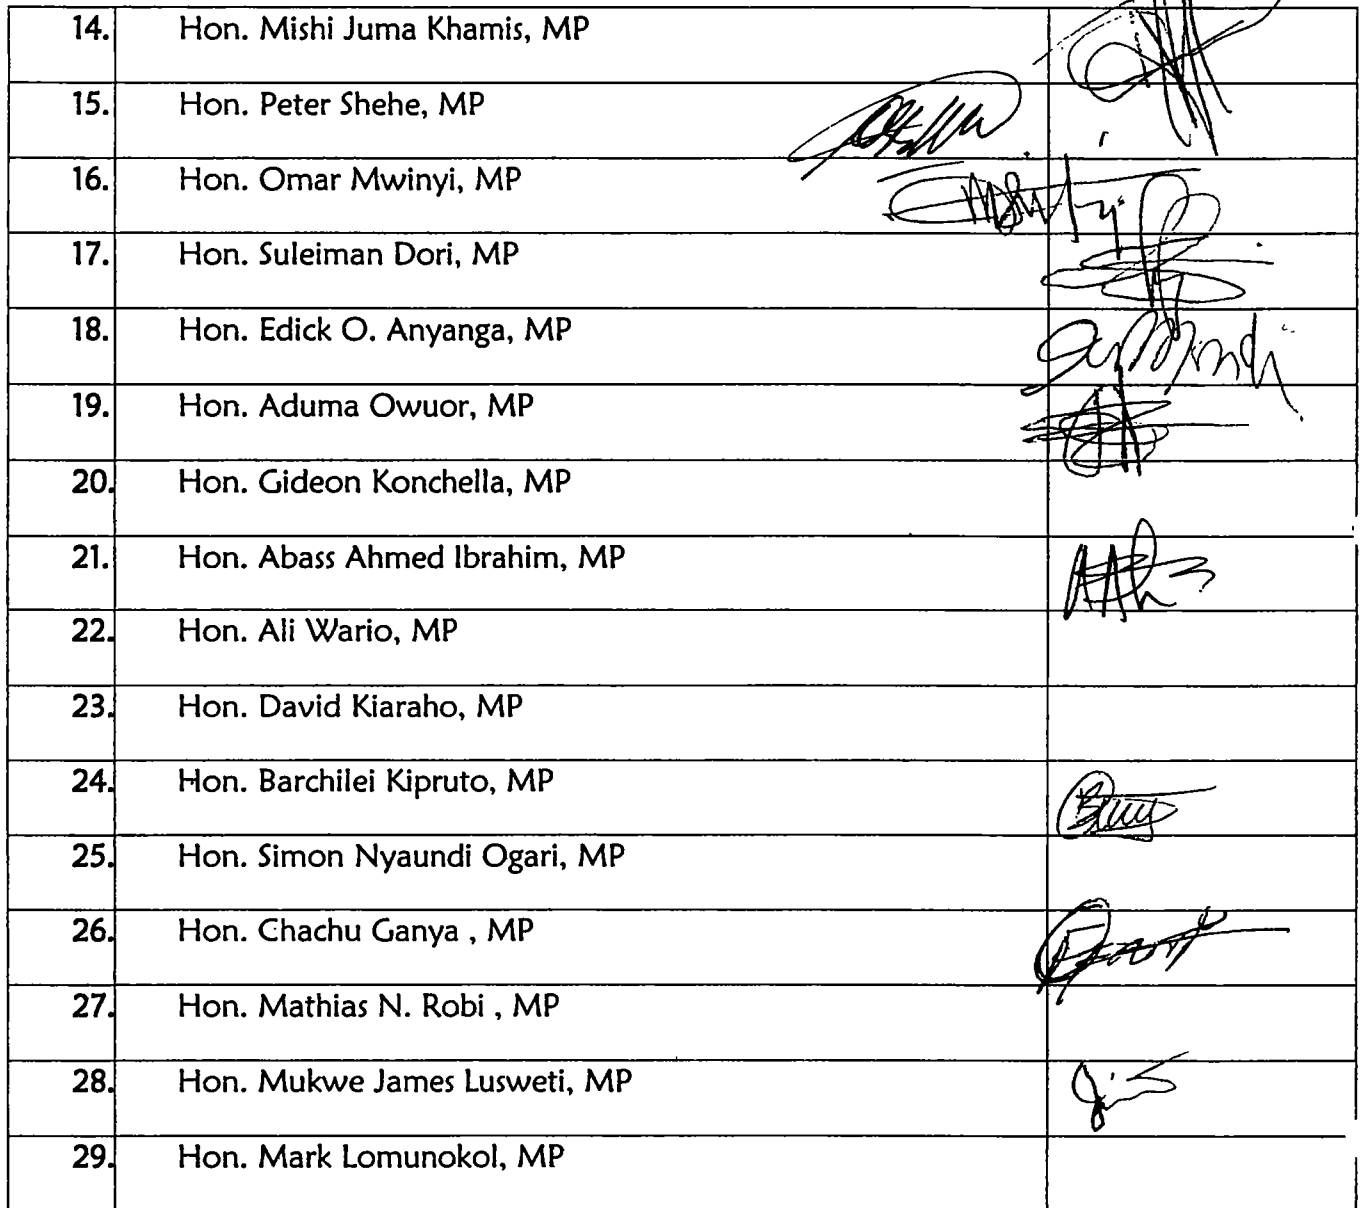 14. Hon. Mishi Juma Khamis, MP
15. Hon. Peter Shehe, MP
16. Hon. Omar Mwinyi, MP
17. Hon. Suleiman Dori, MP
18. Hon. Edick O. Anyanga, MP
19. Hon. Aduma Owuor, MP
20. Hon. Gideon Konchella, MP
21. Hon. Abass Ahmed Ibrahim, MP
22. Hon. Ali Wario, MP
23. Hon. David Kiaraho, MP
24. Hon. Barchilei Kipruto, MP
25. Hon. Simon Nyaundi Ogari, MP
26. Hon. Chachu Ganya , MP
27. Hon. Mathias N. Robi , MP
28. Hon. Mukwe James Lusweti, MP
29. Hon. Mark Lomunokol, MP